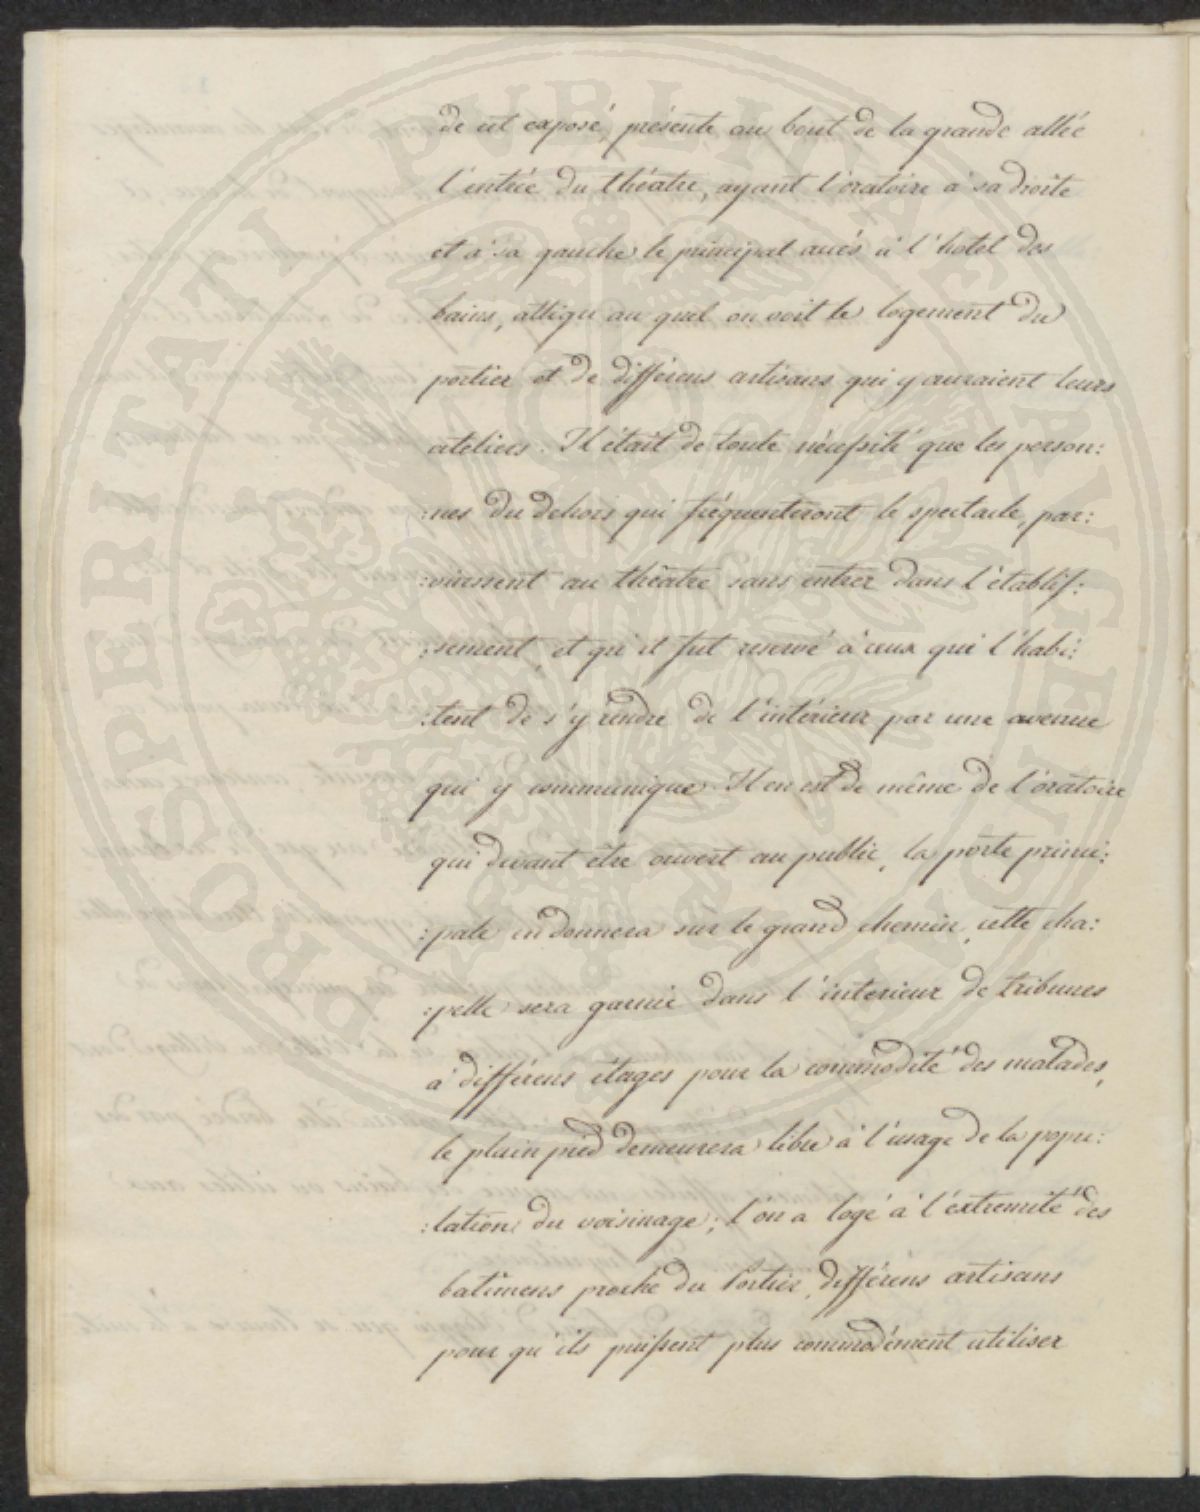 de cet exposé, présente au bout de la grande allée
l'entrée du théatre, ayant l'oratoire à sa droite
et à sa gauche le principal accès à l'hotel des
bains, attigu au quel on voit le logement du
portier et de différens artisans qui y auraient leurs
ateliers. Il était de toute nécessité que les person:
:nes du dehors qui fréquenteront le spectacle, par:
:vinssent au théatre sans entrer dans l'établis:
:sement, et qu'il fut reservé à ceux qui l'habi:
:tent de s'y rendre de l'intérieur par une avenue
qui y communique. Il en est de même de l'oratoire
qui devant être ouvert au public, la porte princi:
:pale en donnera sur le grand chemin, cette cha:
:pelle sera garnie dans l'interieur de tribunes
à différens étages pour la commodité des malades,
le plain pied demeurera libre à l'usage de la popu:
:lation du voisinage; l'on a logé à l'extremité des
batimens proche du Portier, différens artisans
pour qu'ils puissent plus commodément utiliser
PROSPERITATI PVBLICAE AVGENDAE